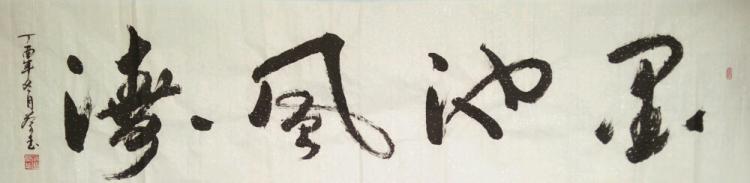 墨池風濤
丁酉年冬月